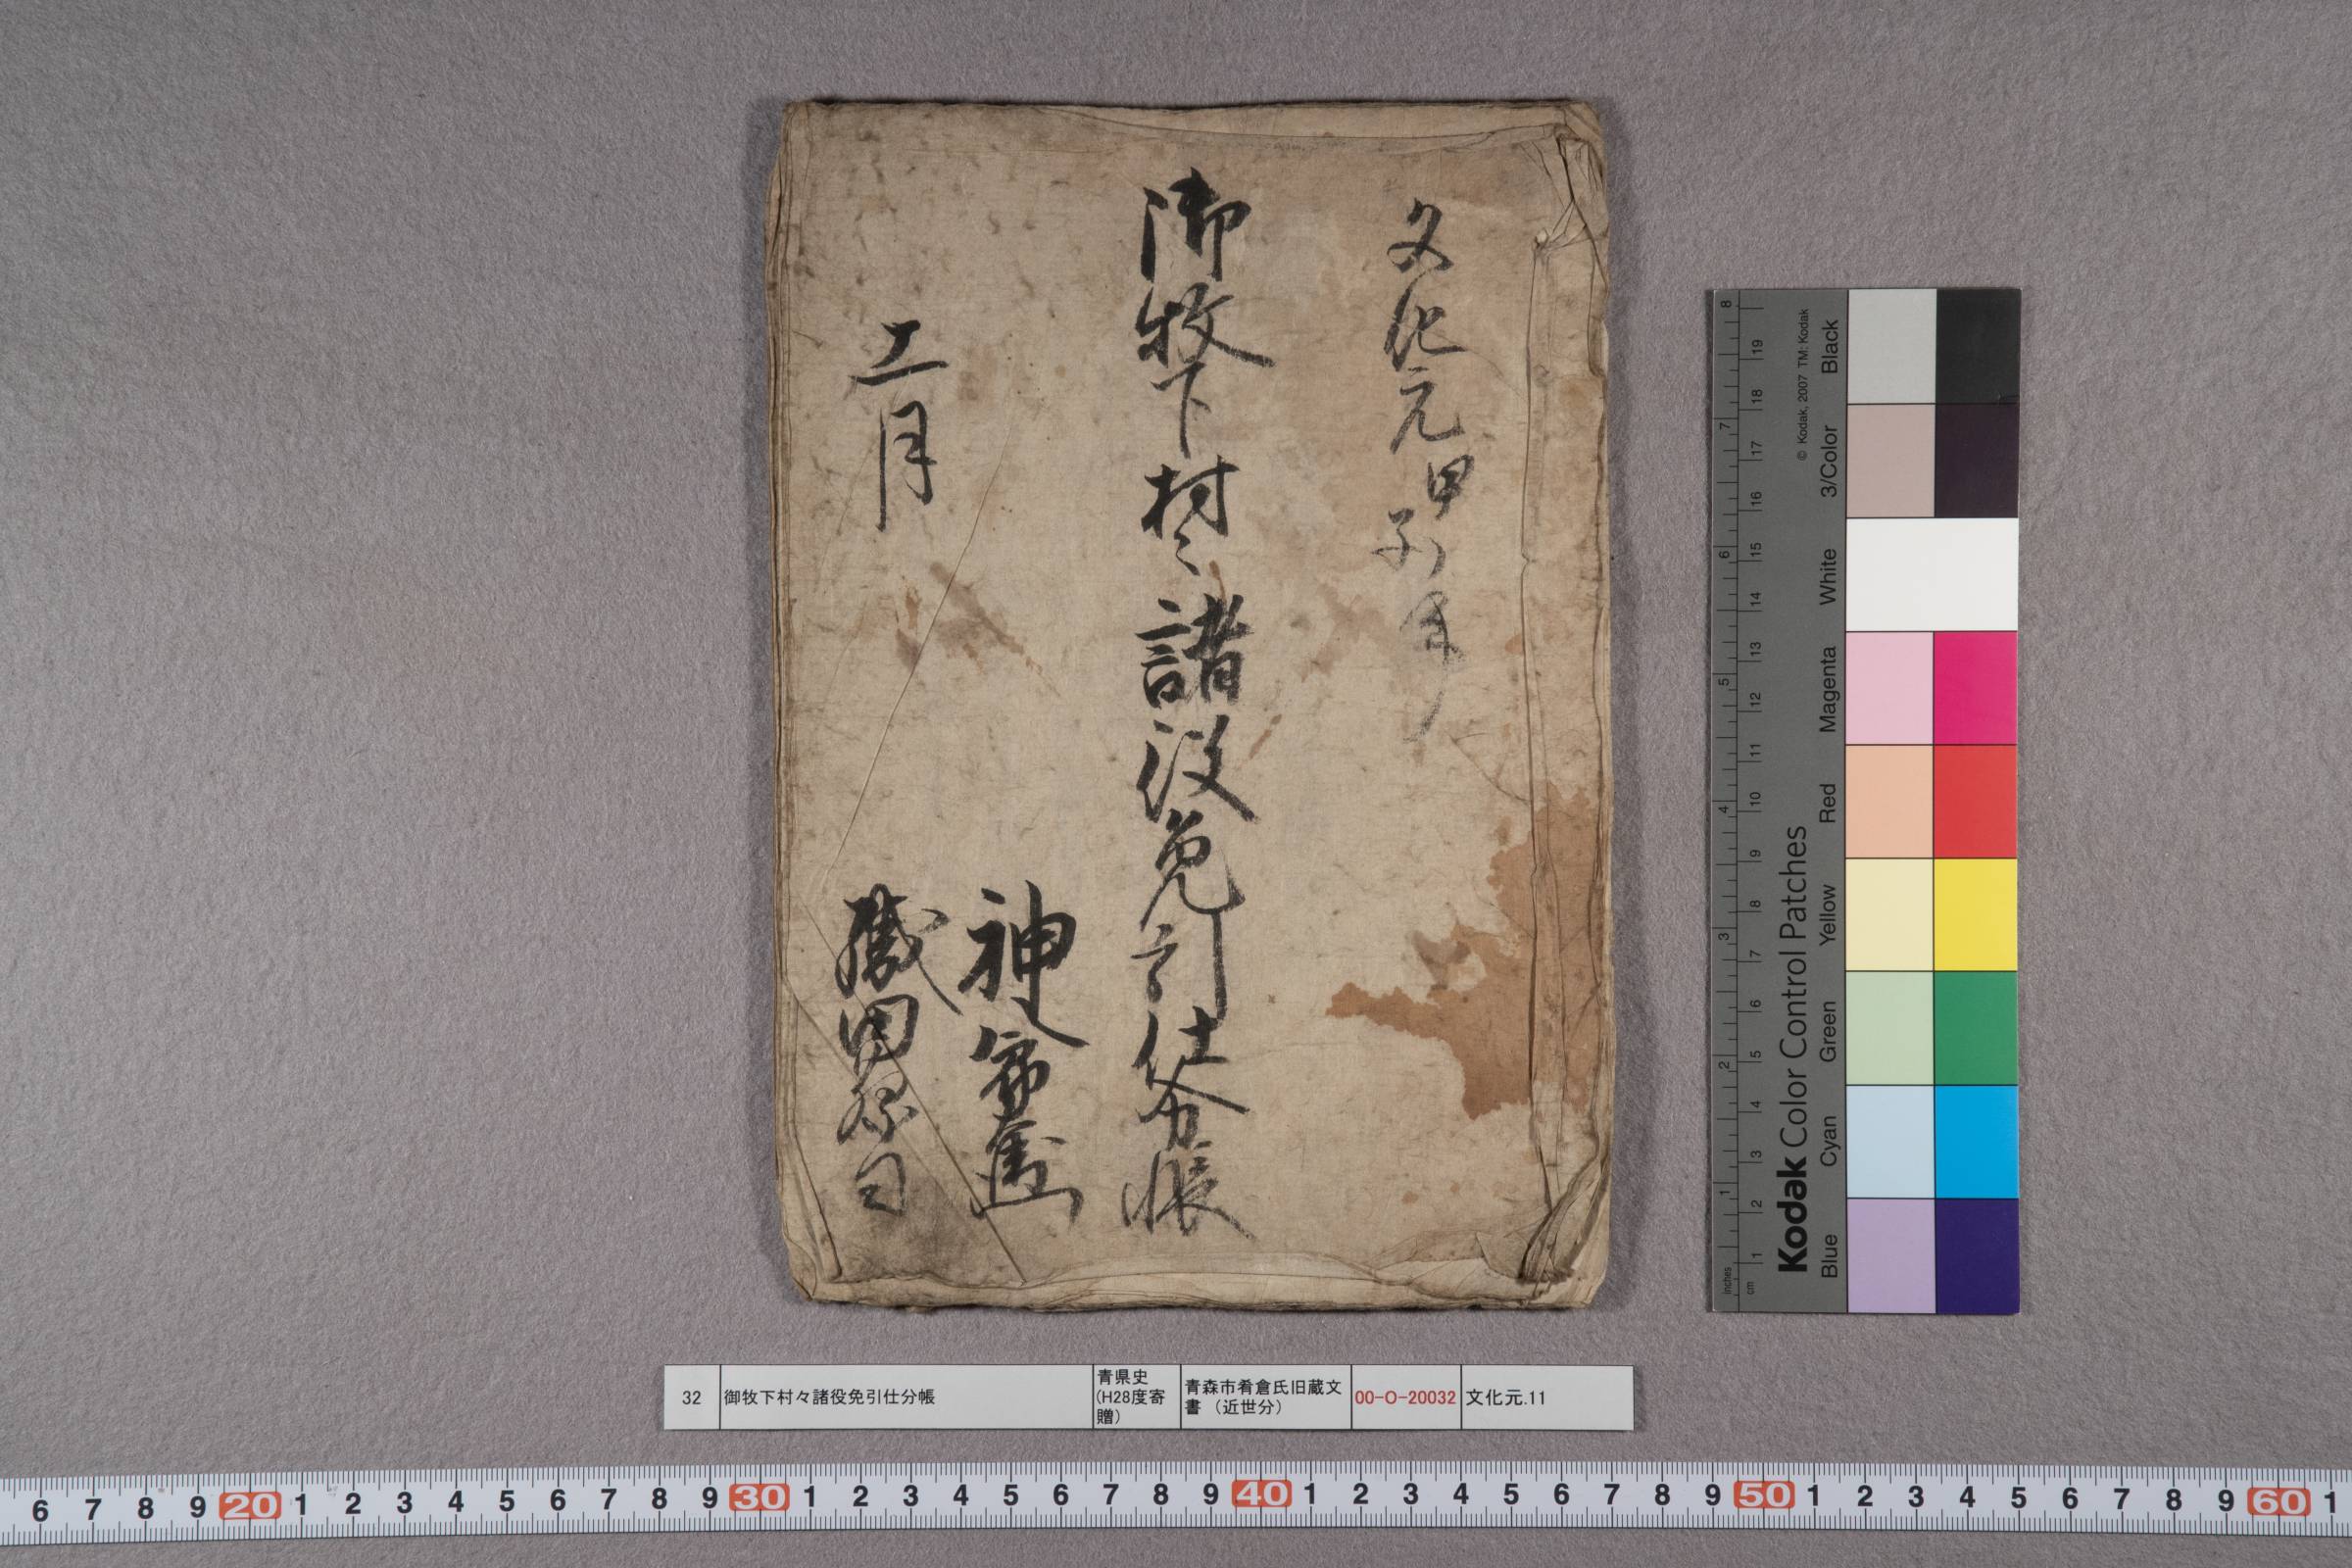 文化元甲子年
御牧下村々諸役免引仕分帳
十一月
神
田
32
御牧下村々諸役免引仕分帳
青県史
(H28度寄
贈)
青森市肴倉氏旧蔵文
書（近世分）
00-O-20032
文化元.11
Kodak Color Control Patches
© Kodak, 2007 TM: Kodak
Blue Cyan Green Yellow Red Magenta White 3/Color Black
inches 1 2 3 4 5 6 7 8
cm 1 2 3 4 5 6 7 8 9 10 11 12 13 14 15 16 17 18 19
6 7 8 9 20 1 2 3 4 5 6 7 8 9 30 1 2 3 4 5 6 7 8 9 40 1 2 3 4 5 6 7 8 9 50 1 2 3 4 5 6 7 8 9 60 1